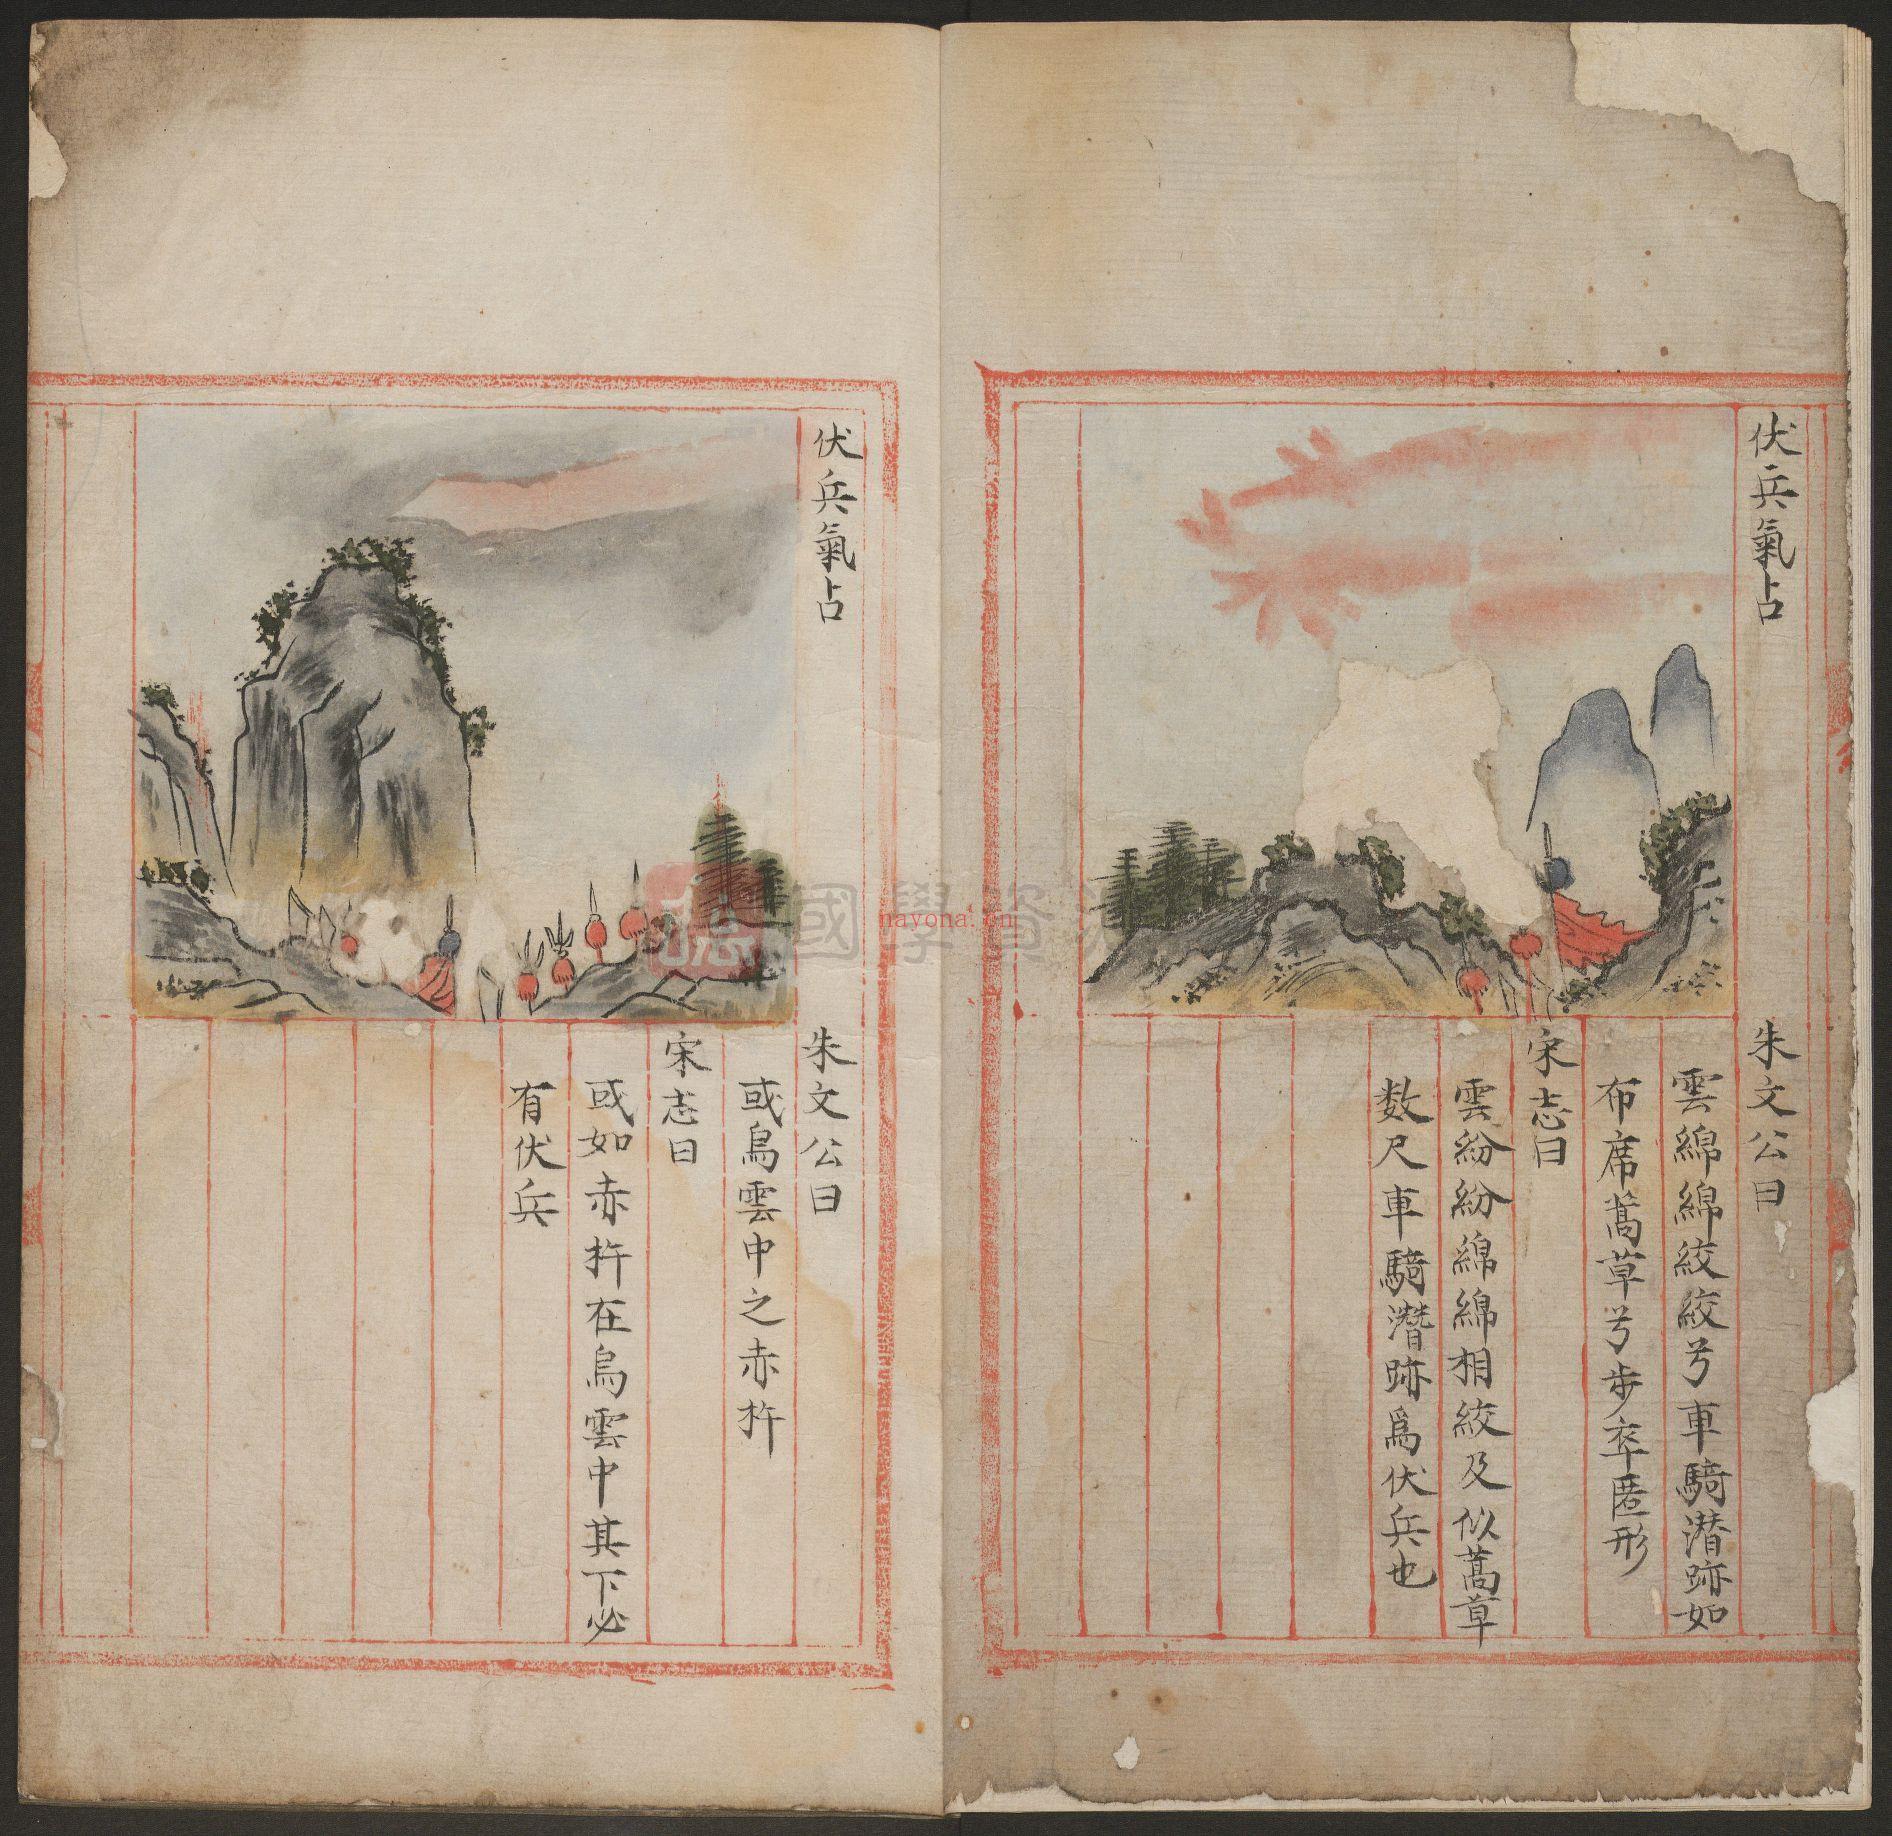 伏兵氣占
朱文公曰
雲綿綿絞絞兮車騎潜跡如
布席蒿草兮步卒匿形
宋志曰
雲紛紛綿綿相絞及似蒿草
数尺車騎潛跡爲伏兵也
伏兵氣占
朱文公曰
或烏雲中之赤杵
宋志曰
或如赤杵在烏雲中其下必
有伏兵
國學資
nayona.cn